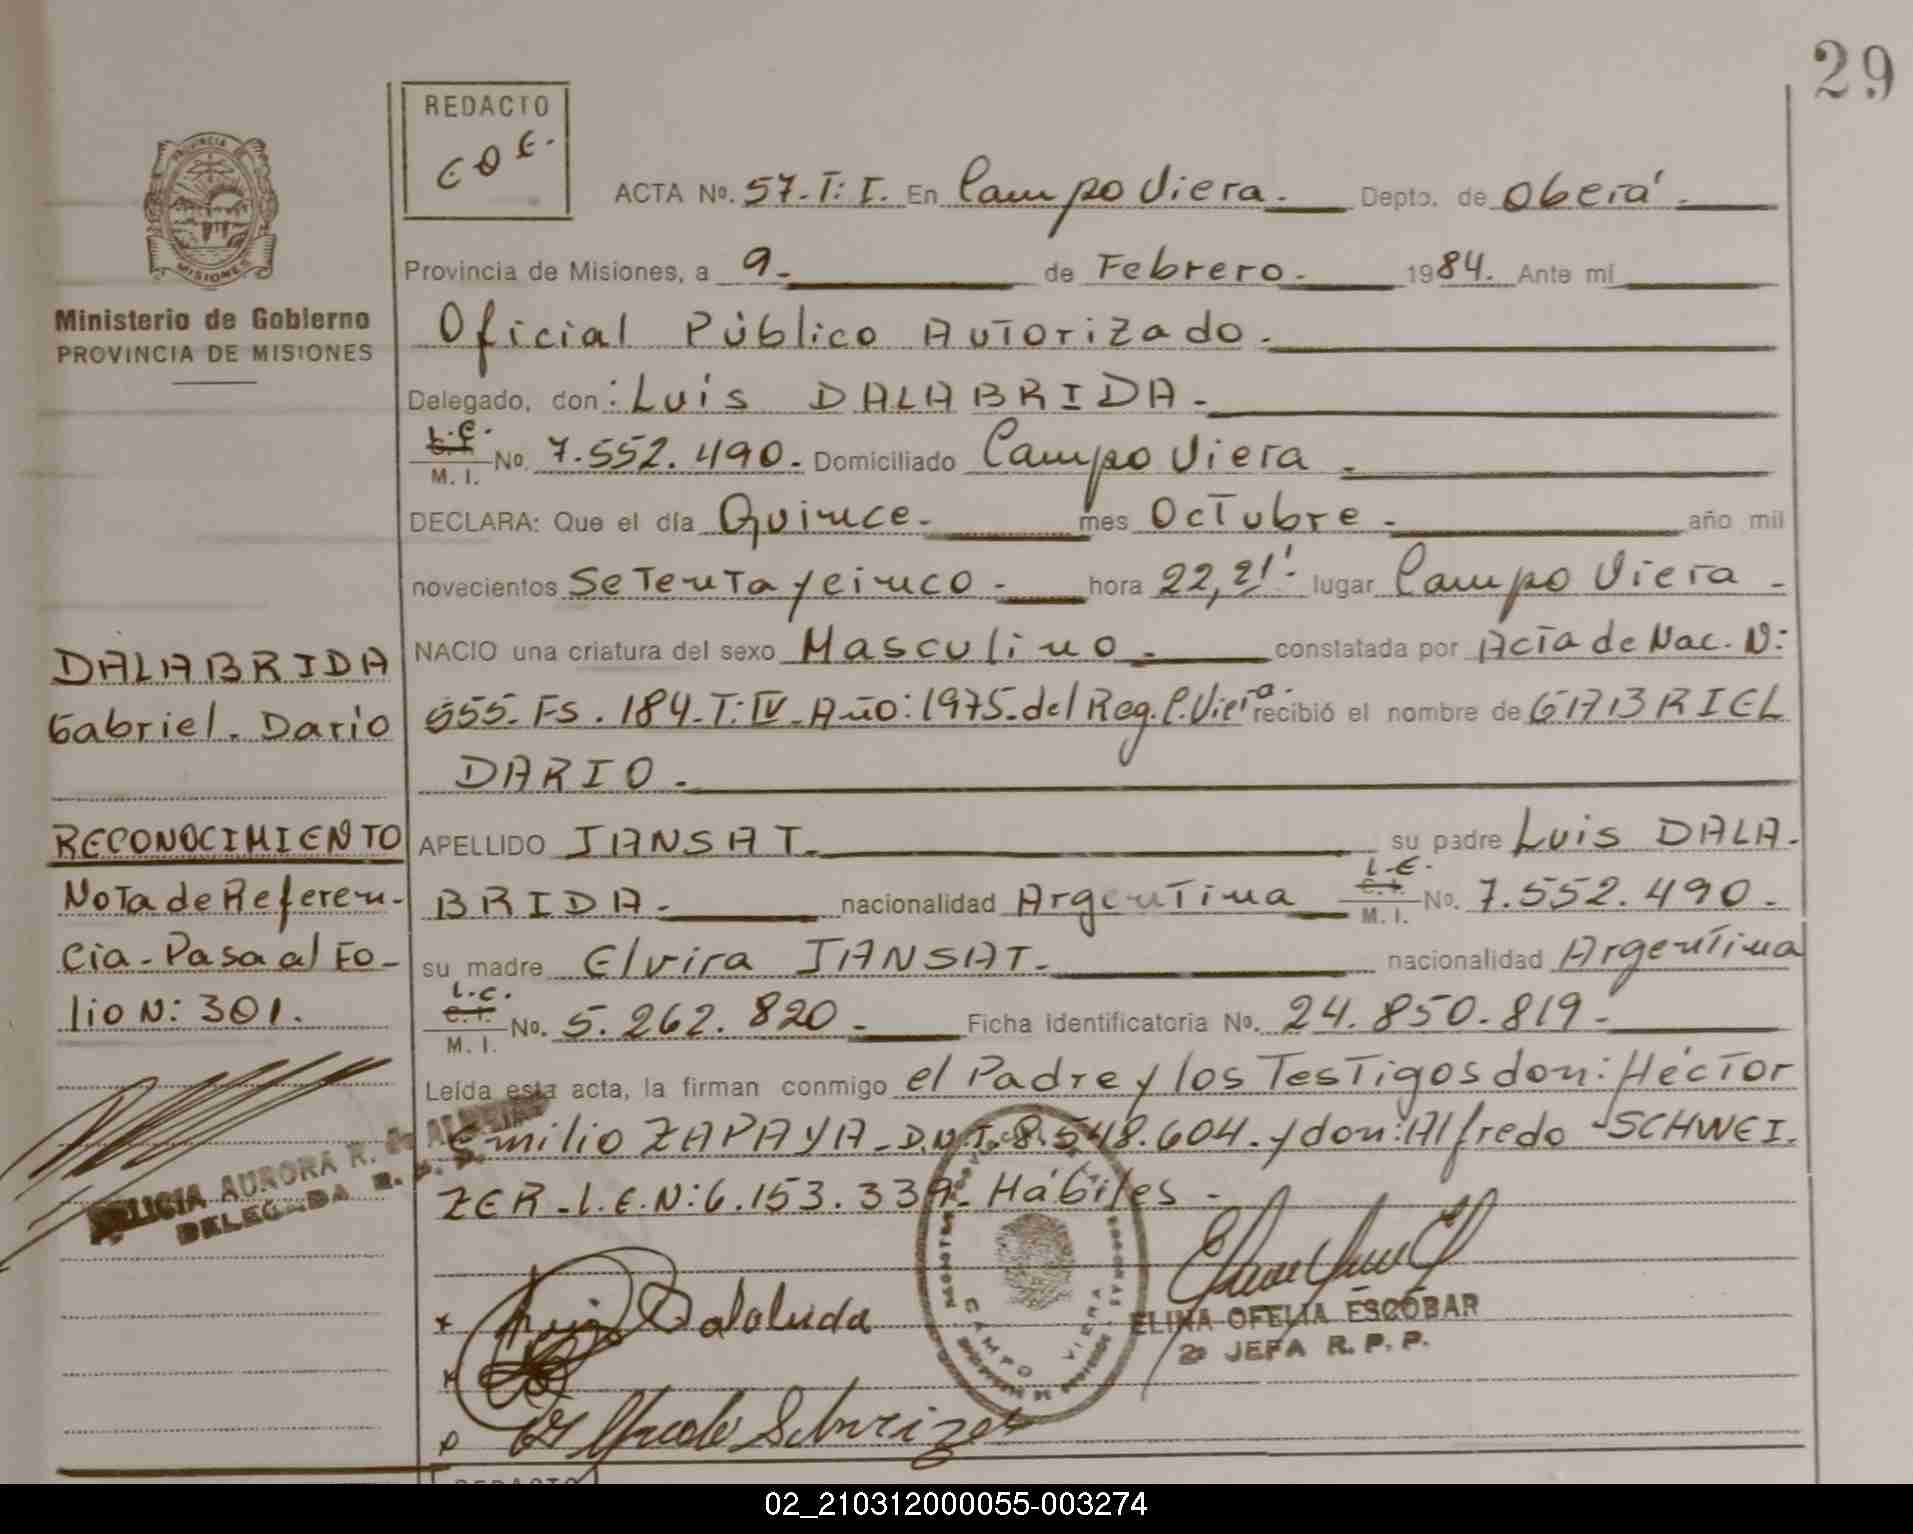 29
REDACTO
E O E.
PROVINCIA DE
MISIONES
Ministerio de Gobierno
PROVINCIA DE MISIONES
ACTA No. 57-T: I. En Campo Viera. Depto. de Oberá
Provincia de Misiones, a 9 de Febrero. 1984. Ante mí
Oficial Público Autorizado.
Delegado, don: Luis DALABRIDA.
L.E. M. I. No. 7.552.490. Domiciliado Campo Viera
DECLARA: Que el día Quince mes Octubre año mil
novecientos Setenta y cinco hora 22,21' lugar Campo Viera
NACIO una criatura del sexo Masculino constatada por Acta de Nac. N:
555. Fs. 184. T: IV. Año: 1975. del Reg. C. Viera. recibió el nombre de GABRIEL
DARIO.
APELLIDO JANSAT. su padre Luis DALA-
BRIDA. nacionalidad Argentina L.E. M. I. No. 7.552.490.
su madre Elvira JANSAT. nacionalidad Argentina
L.C. M. I. No. 5.262.820. Ficha identificatoria No. 24.850.819.
Leída esta acta, la firman conmigo el Padre y los Testigos don: Héctor
Emilio ZAPAYA. D.N.I. 8.548.604. y don: Alfredo SCHWEI-
ZER. L.E.N: 6.153.339. Hábiles
DALABRIDA
Gabriel. Dario
RECONOCIMIENTO
Nota de Referen-
cia. Pasa al Fo-
lio N: 301.
FELICIA AURORA R. de
DELEGADA R. P. P.
CAMPO VIERA
Luis Dalabrida
ELINA OFELIA ESCOBAR
2º JEFA R. P. P.
Alfredo Schweizer
REDACTO
02_210312000055-003274